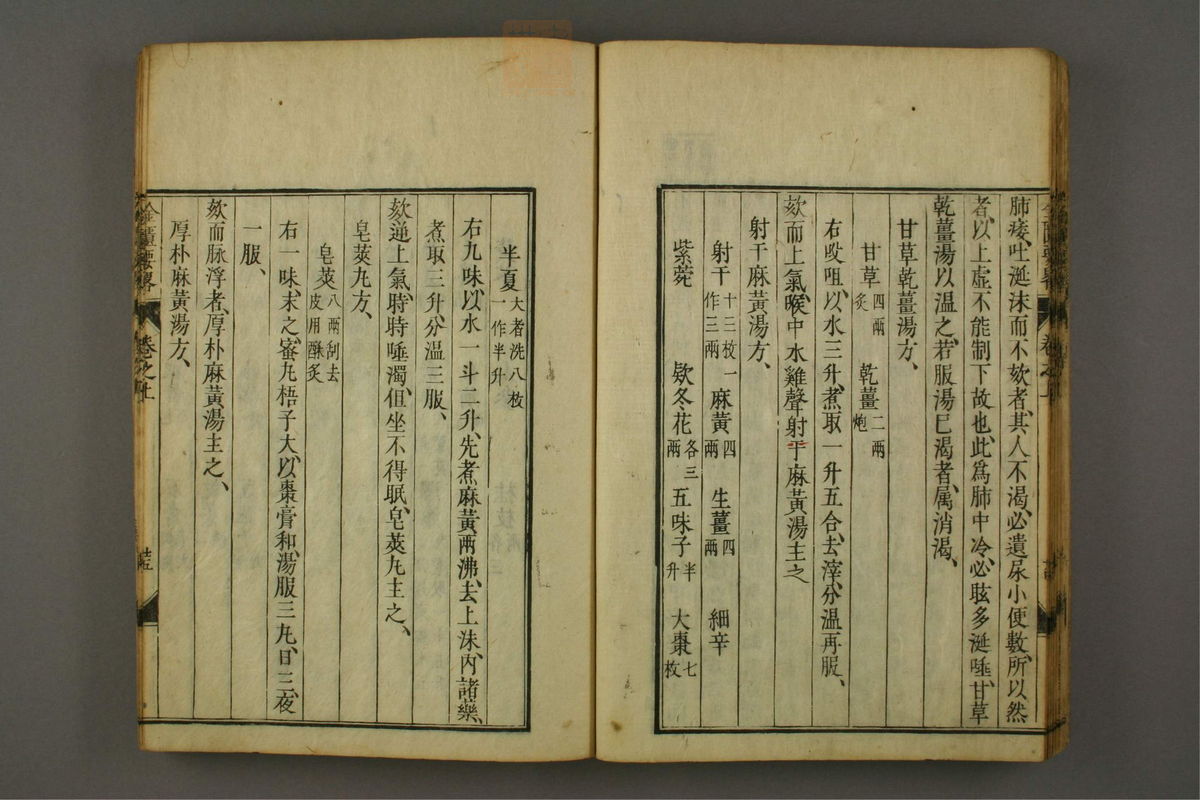 肺痿、吐涎沫而不欬者、其人不渴、必遺尿小便數、所以然
者、以上虛不能制下故也、此爲肺中冷、必眩多涎唾、甘草
乾薑湯以温之、若服湯已渴者、属消渴、
甘草乾薑湯方、
甘草四兩炙 乾薑二兩炮
右㕮咀、以水三升、煮取一升五合、去滓、分温再服、
欬而上氣、喉中水雞聲、射干麻黃湯主之
射干麻黃湯方、
射干十三枚一作三兩 麻黃四兩 生薑四兩 細辛
紫菀 欵冬花各三兩 五味子半升 大棗七枚
半夏大者洗八枚一作半升
右九味、以水一斗二升、先煮麻黃兩沸、去上沫、內諸藥、
煮取三升、分温三服、
欬逆上氣、時時唾濁、但坐不得眠、皂莢丸主之、
皂莢丸方、
皂莢八兩刮去皮用酥炙
右一味、末之、蜜丸梧子大、以棗膏和湯、服三丸、日三、夜
一服、
欬而脉浮者、厚朴麻黃湯主之、
厚朴麻黃湯方、
金匱要畧 卷之上